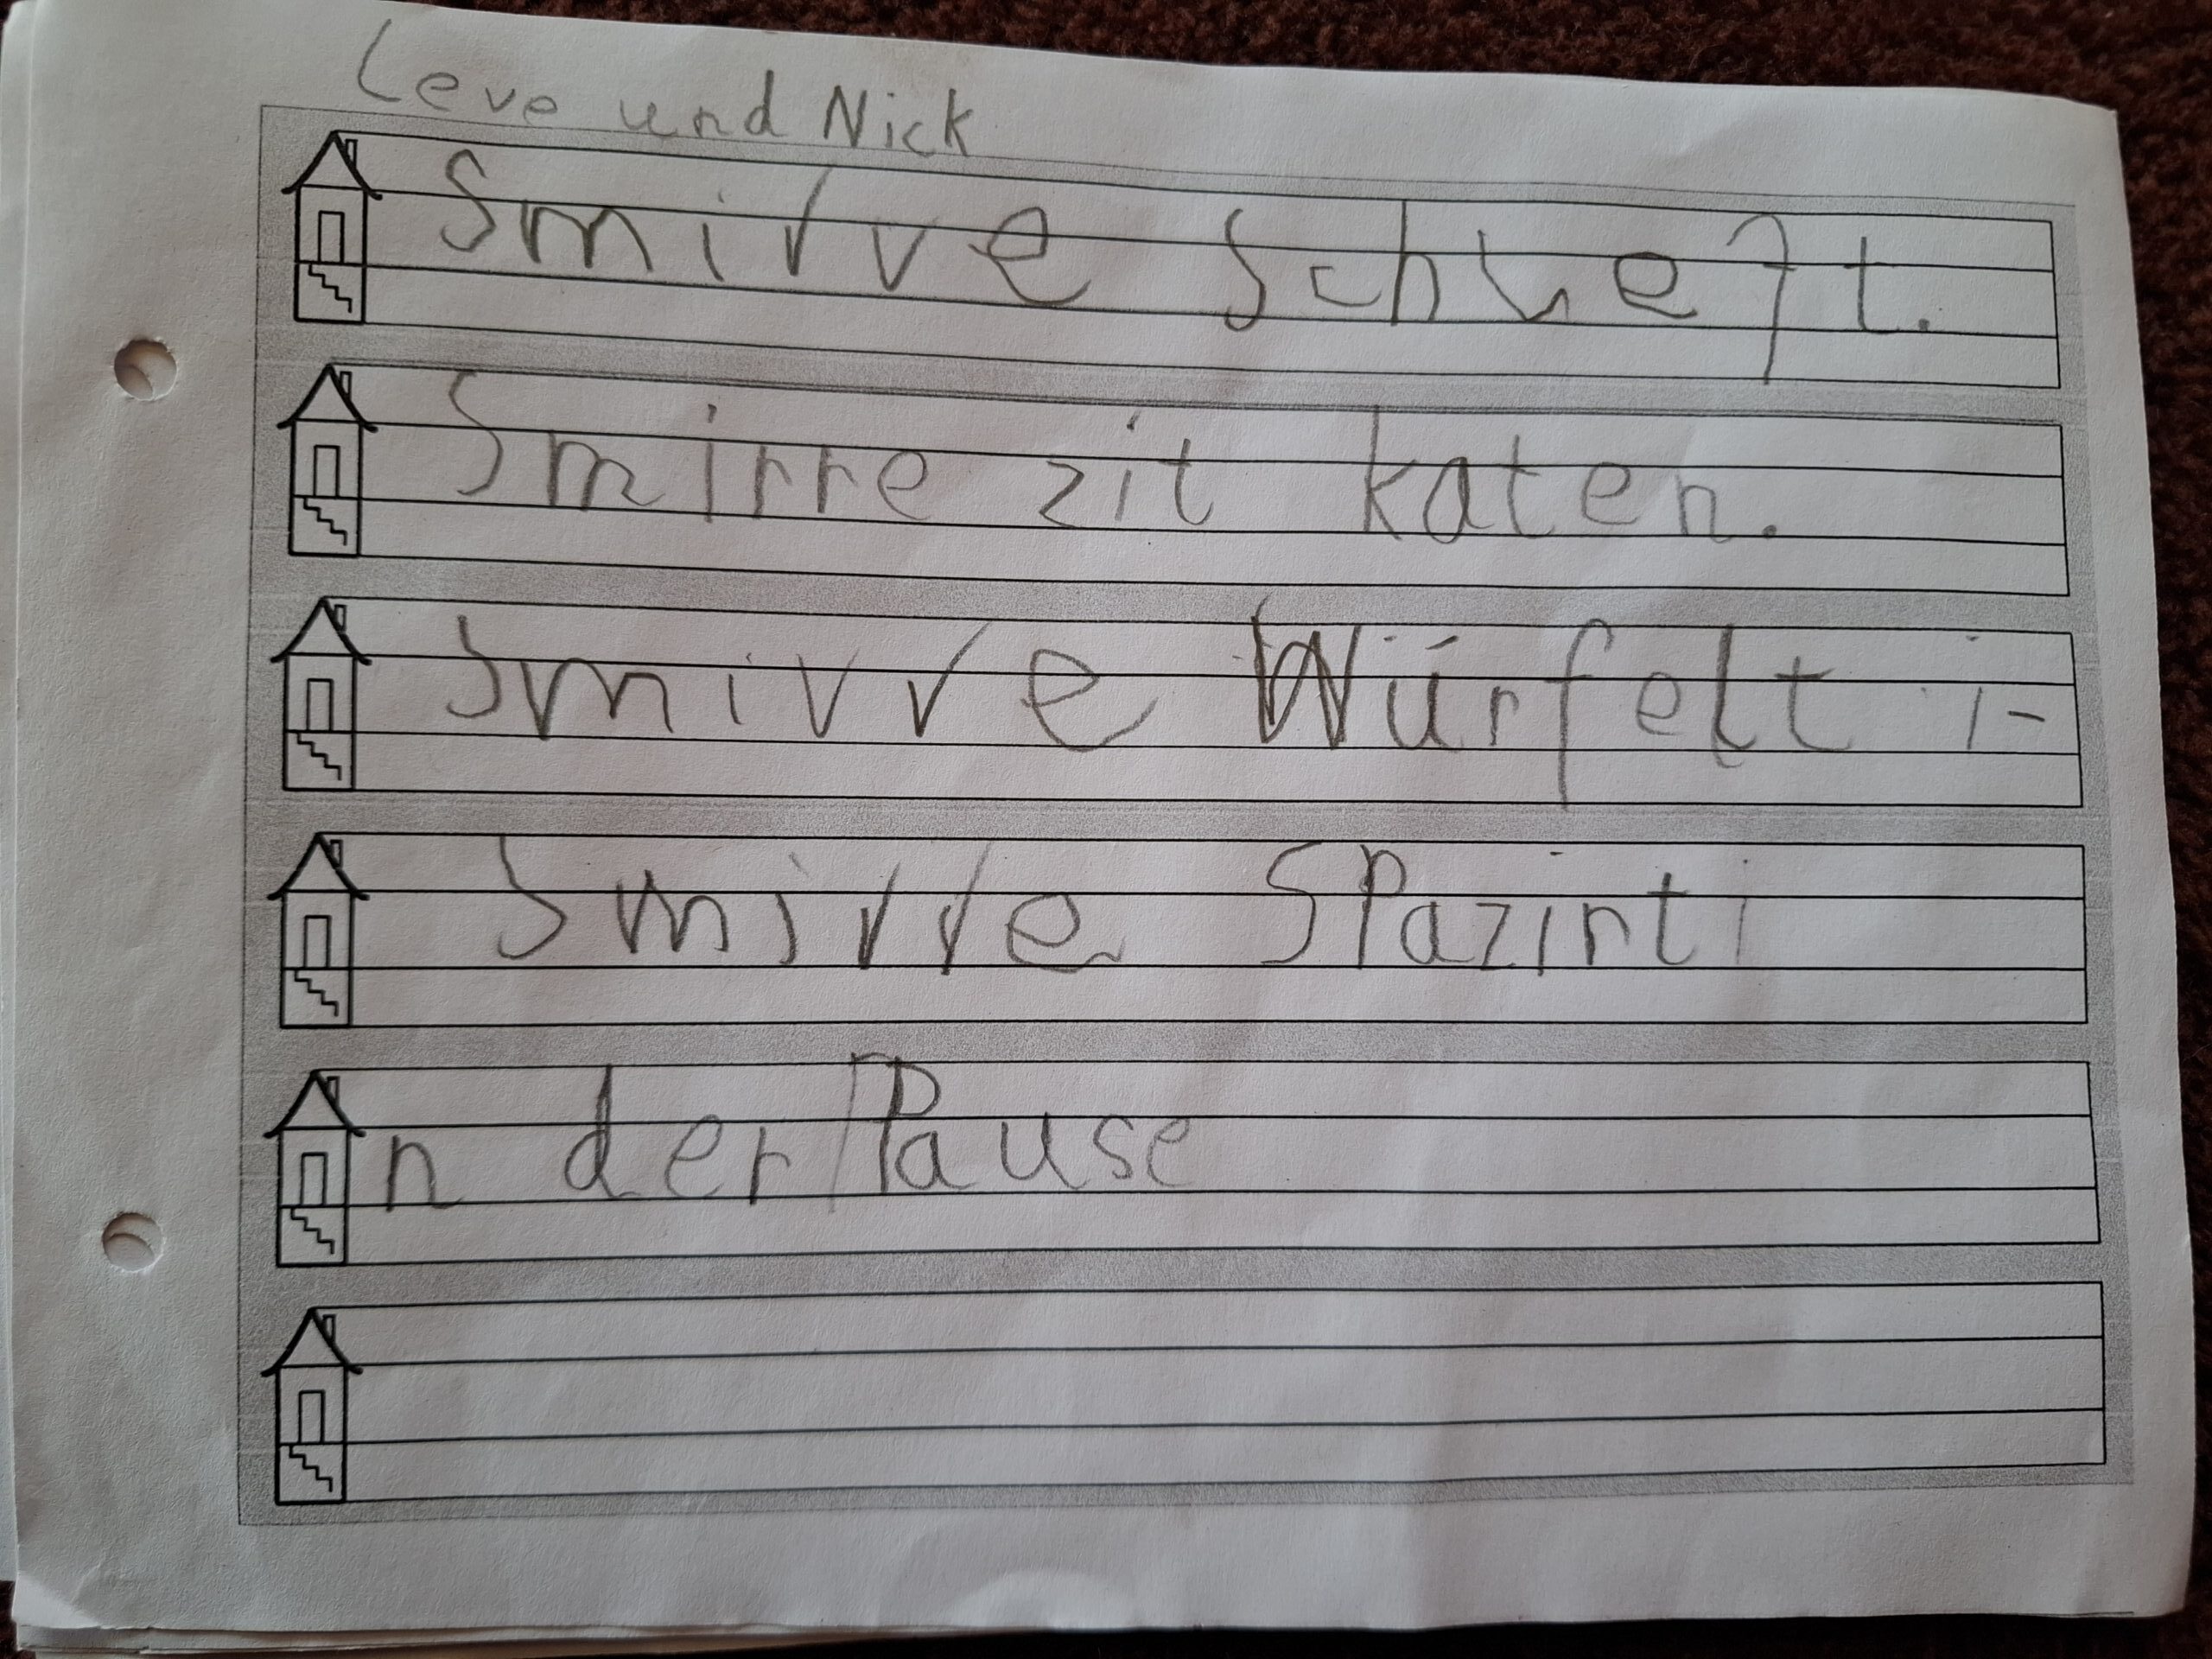 Leve und Nick
Smirre Schleft.
Smirre zit katen.
Smirre Würfelt i-
Smirre SPazirt i
n der Pause